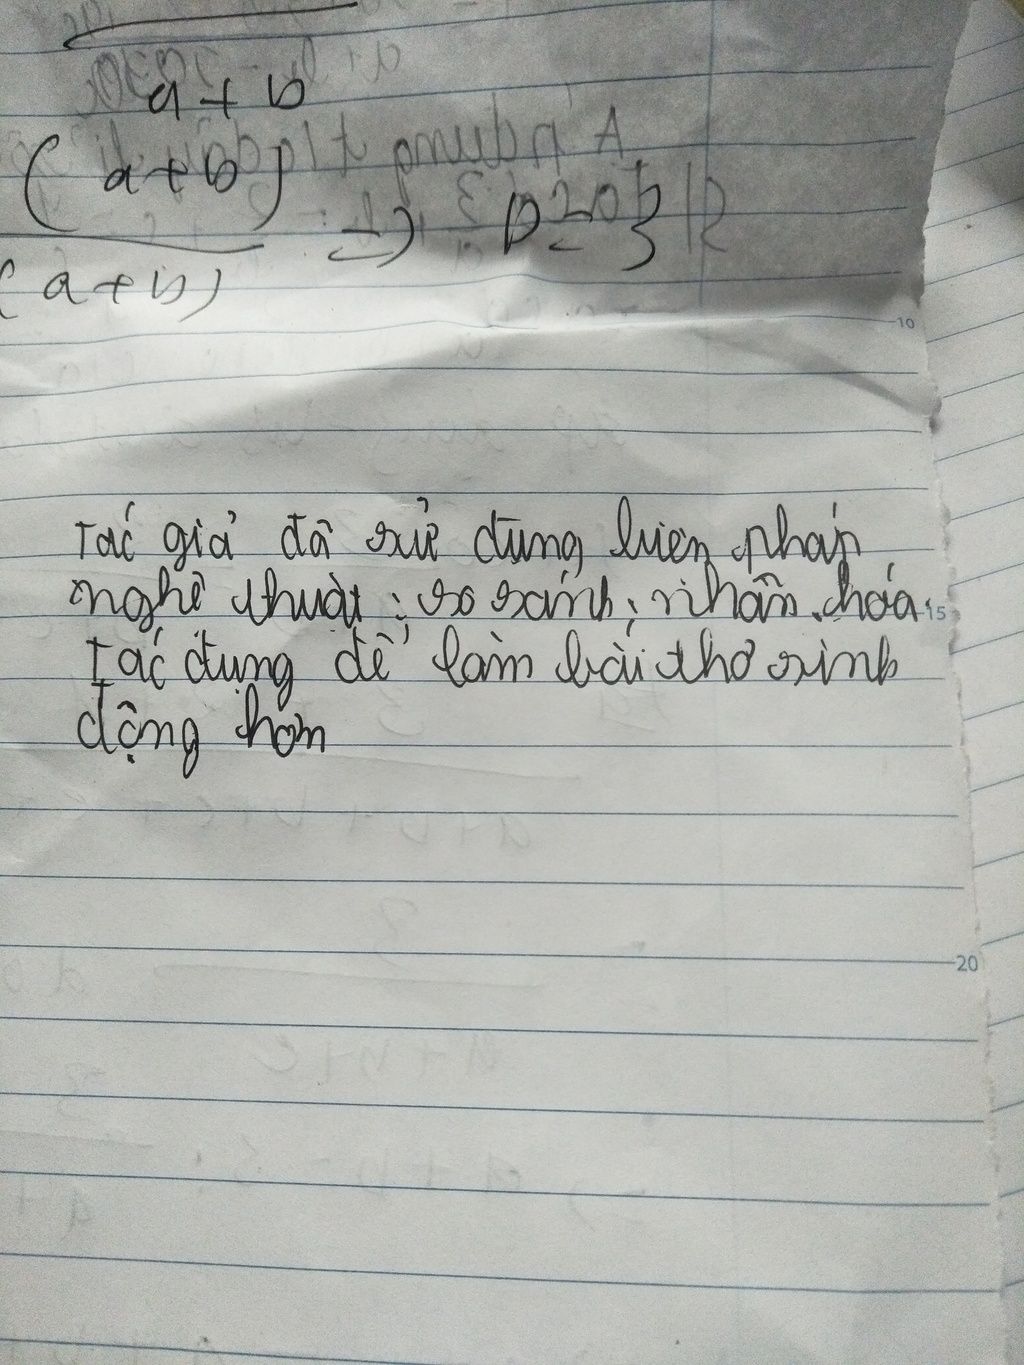 a + b
(a+b)
(a+b)
=> D = 3
10
Tác giả đã sử dụng biện pháp
nghệ thuật: so sánh, nhân hóa.
15
Tác dụng để làm bài thơ sinh
động hơn
20